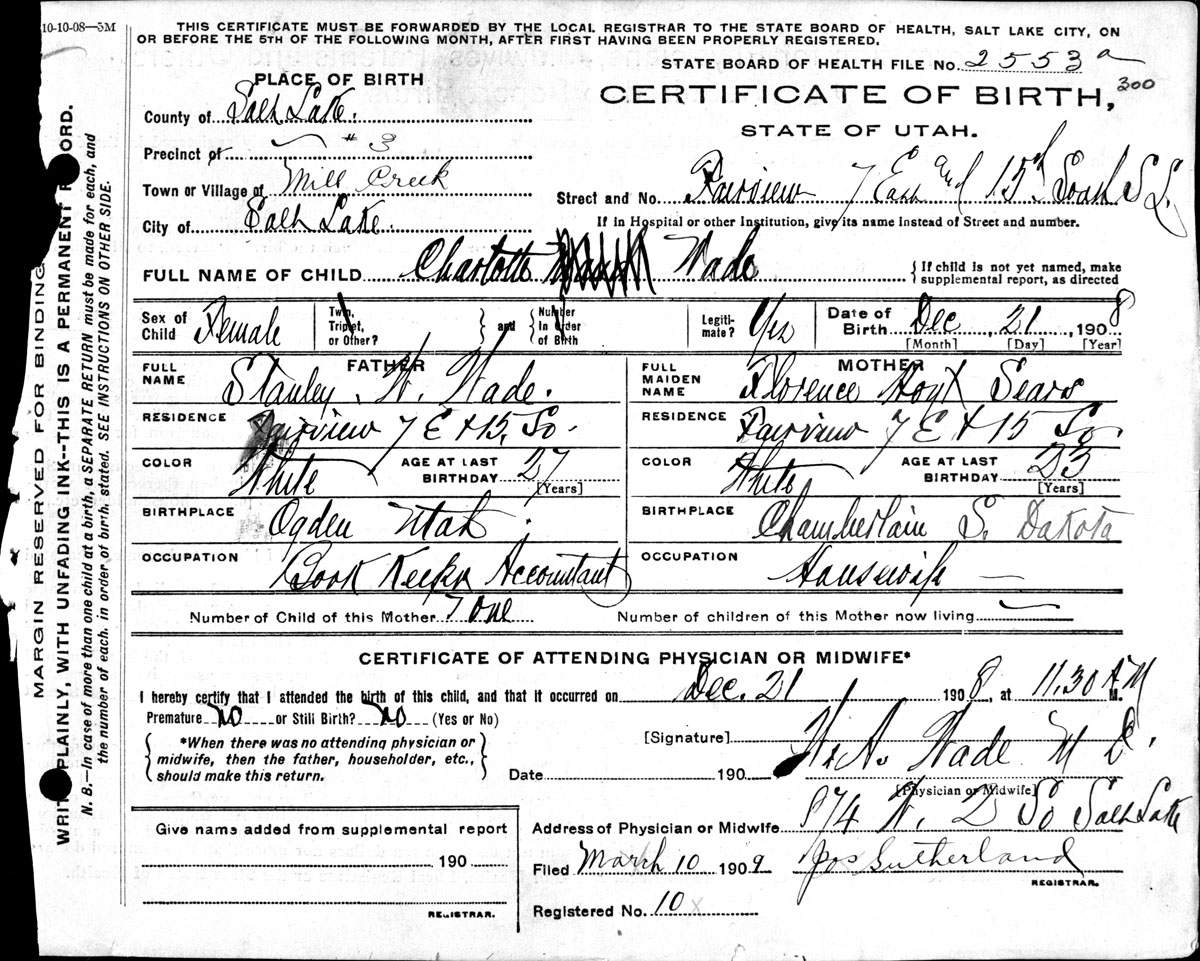 10-10-08—5M
THIS CERTIFICATE MUST BE FORWARDED BY THE LOCAL REGISTRAR TO THE STATE BOARD OF HEALTH, SALT LAKE CITY, ON
OR BEFORE THE 5TH OF THE FOLLOWING MONTH, AFTER FIRST HAVING BEEN PROPERLY REGISTERED.
STATE BOARD OF HEALTH FILE No. 2553 a
300
PLACE OF BIRTH
CERTIFICATE OF BIRTH,
STATE OF UTAH.
County of Salt Lake.
Precinct of # 3
Town or Village of Mill Creek
City of Salt Lake.
Street and No. Fairview 7 East and 15th South S L.
If in Hospital or other Institution, give its name instead of Street and number.
FULL NAME OF CHILD Charlotte Wade
{ If child is not yet named, make
supplemental report, as directed
Sex of Child Female
Twin, Triplet, or Other? } and { Number In Order of Birth
Legiti-mate? Yes
Date of Birth Dec, 21, 1908
[Month] [Day] [Year]
FATHER
FULL NAME Stanley W. Wade.
RESIDENCE Fairview 7 E + 15, So.
COLOR White AGE AT LAST BIRTHDAY 27 [Years]
BIRTHPLACE Ogden Utah
OCCUPATION Book Keeper Accountant
MOTHER
FULL MAIDEN NAME Florence Hoyt Sears
RESIDENCE Fairview 7 E + 15 So
COLOR White AGE AT LAST BIRTHDAY 23 [Years]
BIRTHPLACE Chamberlain S. Dakota
OCCUPATION Housewife —
Number of Child of this Mother One
Number of children of this Mother now living
CERTIFICATE OF ATTENDING PHYSICIAN OR MIDWIFE*
I hereby certify that I attended the birth of this child, and that it occurred on Dec. 21 1908, at 11.30 A M M.
Premature no or Still Birth? no (Yes or No)
{ *When there was no attending physician or
midwife, then the father, householder, etc.,
should make this return. }
[Signature] W. A. Wade M D.
[Physician or Midwife]
Date 190
Address of Physician or Midwife 874 W. 2 So Salt Lake
Filed March 10 1909 Jos Sutherland
REGISTRAR.
Registered No. 10
Give name added from supplemental report
190
REGISTRAR.
MARGIN RESERVED FOR BINDING
WRITE PLAINLY, WITH UNFADING INK—THIS IS A PERMANENT RECORD.
N. B.—In case of more than one child at a birth, a SEPARATE RETURN must be made for each, and
the number of each, in order of birth, stated. SEE INSTRUCTIONS ON OTHER SIDE.